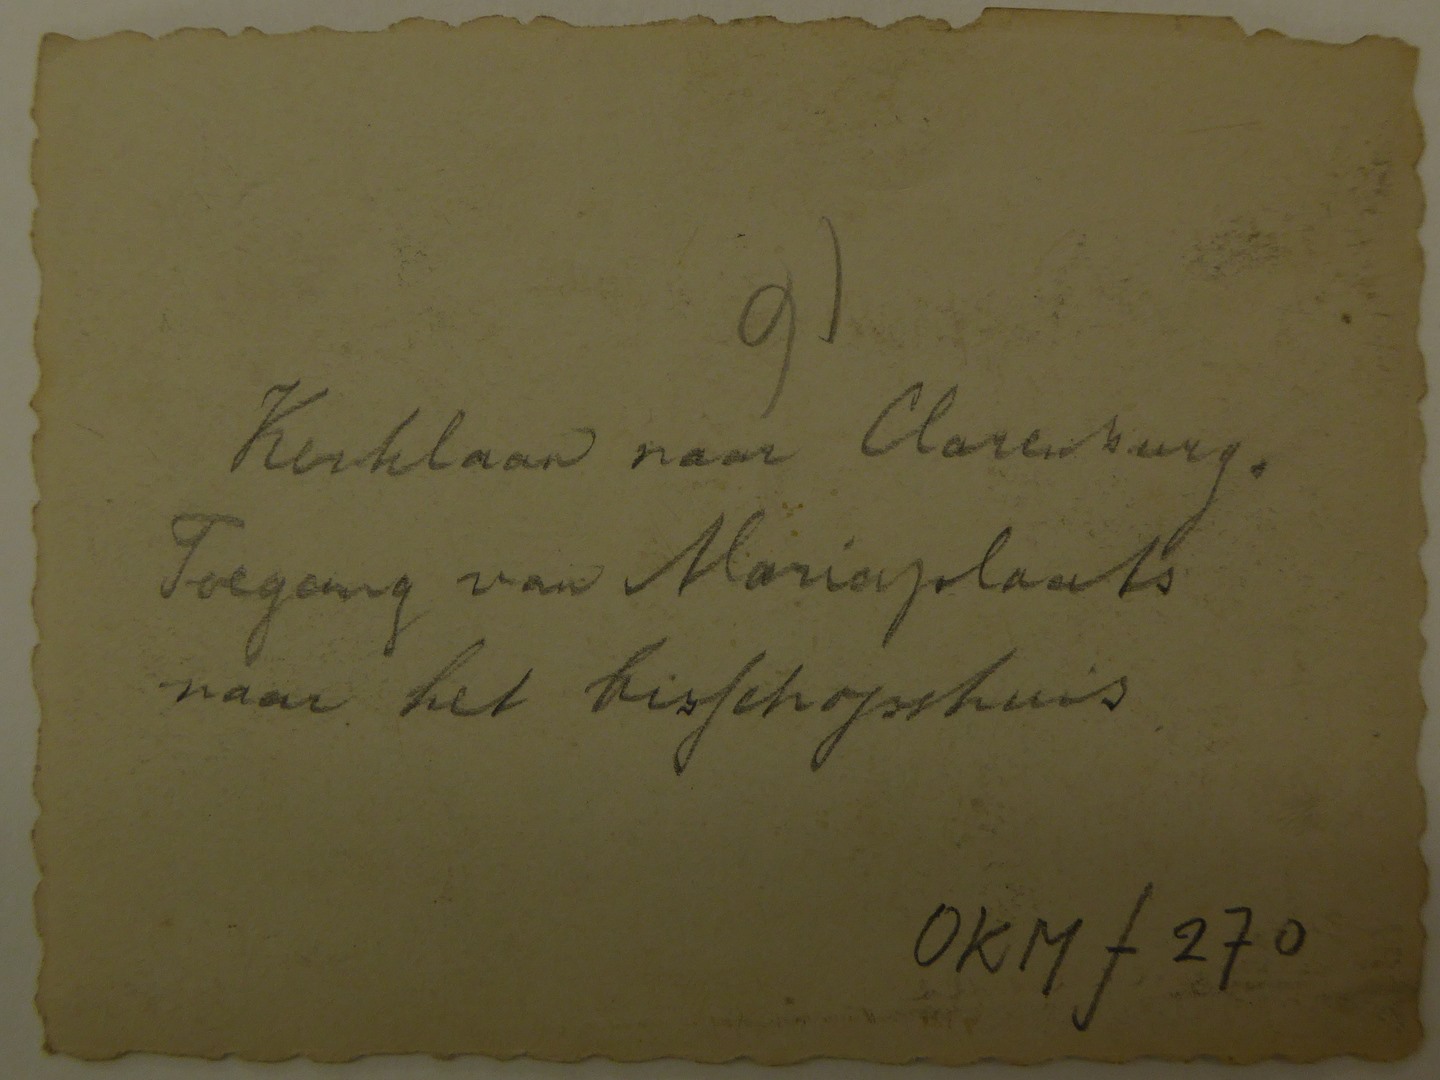 9)
Kerklaan naar Clarenburg.
Toegang van Mariaplaats
naar het bisschopshuis
OKM f 270